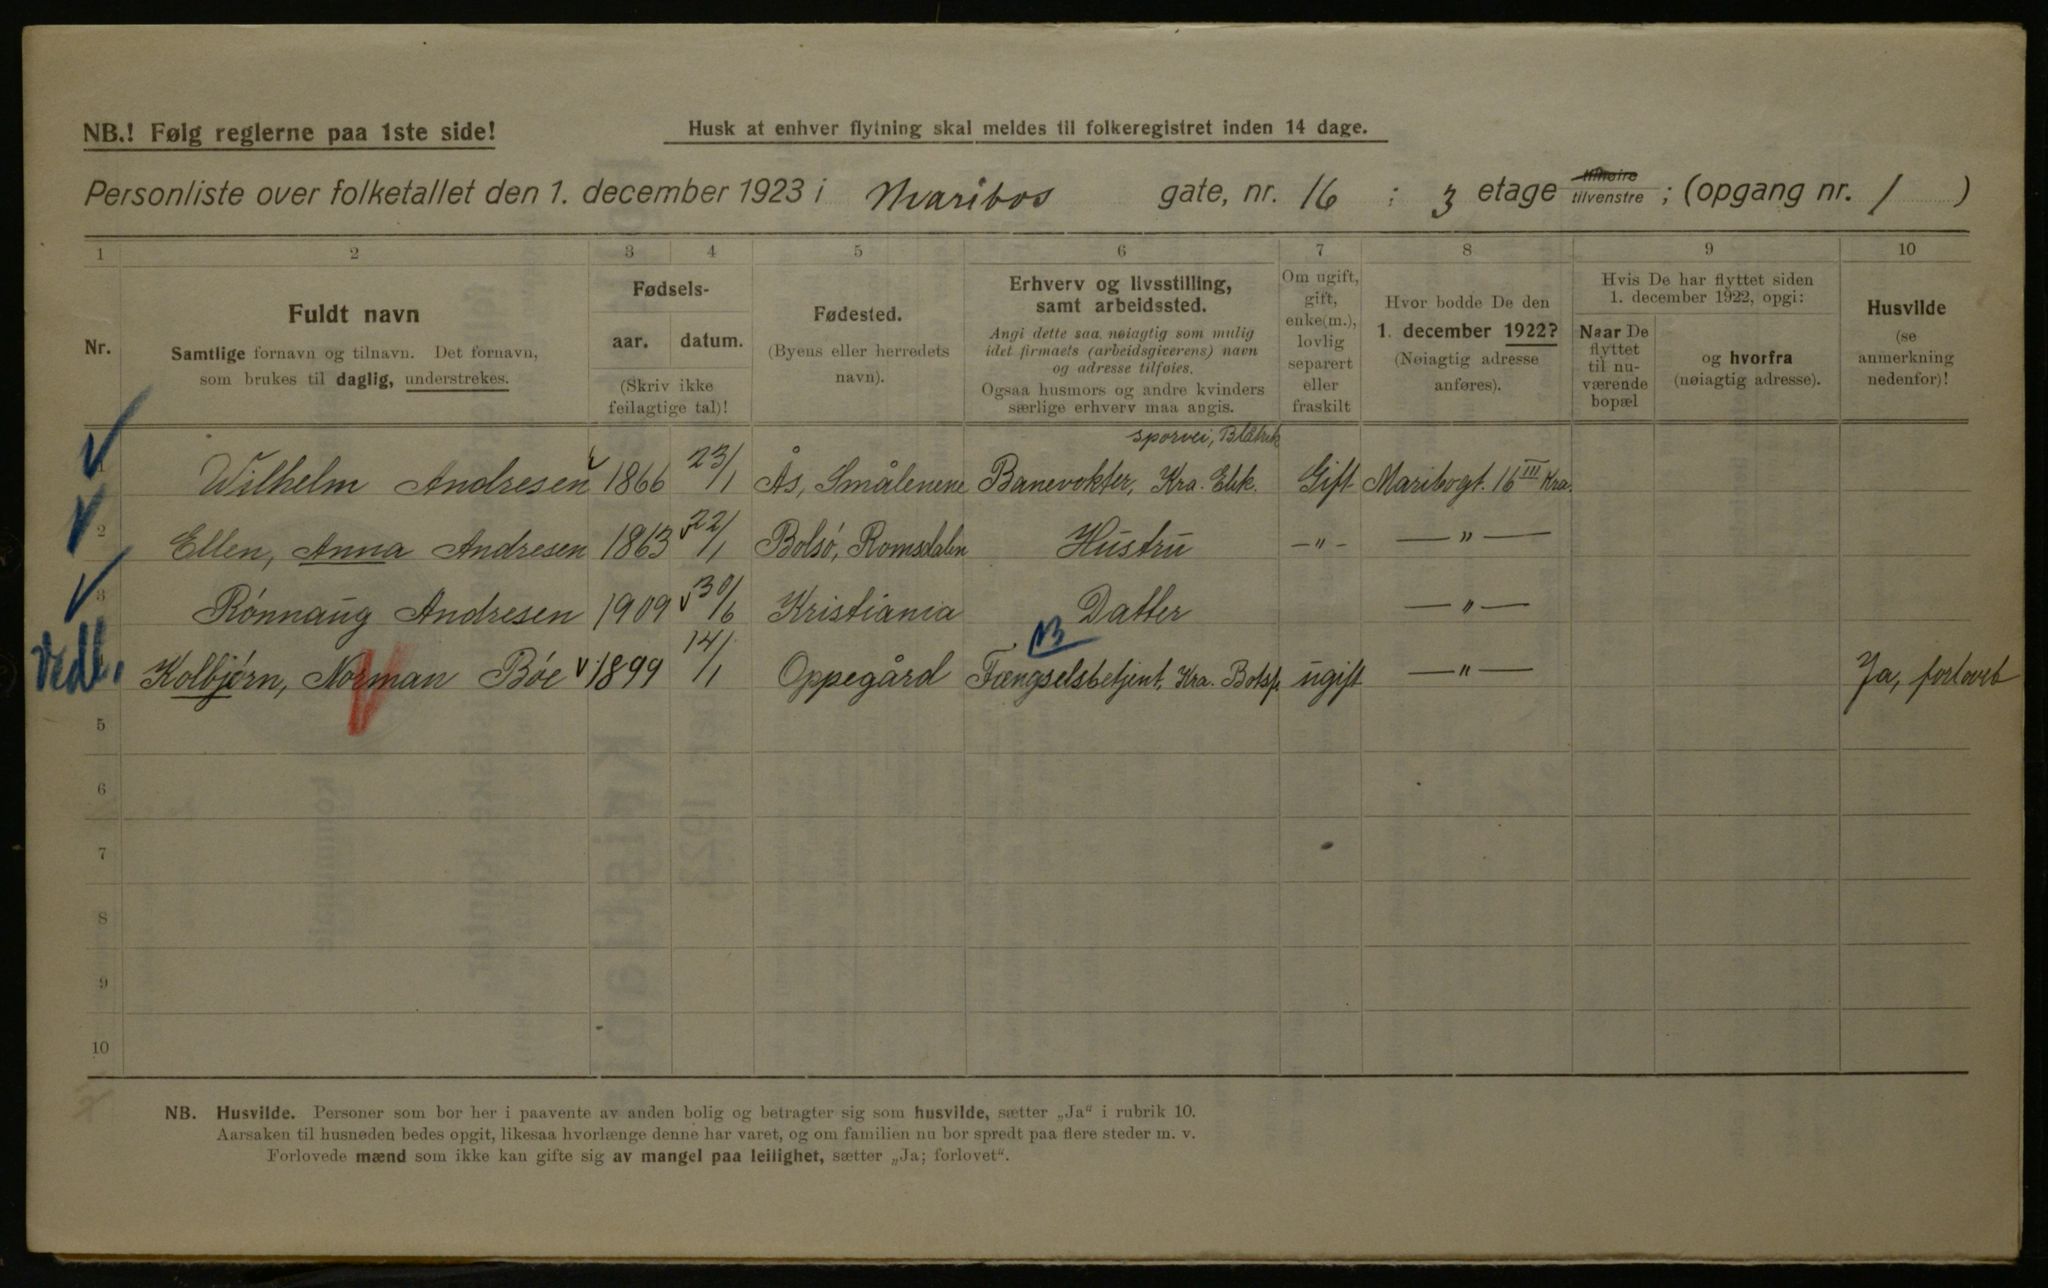 NB.! Følg reglerne paa 1ste side!
Husk at enhver flytning skal meldes til folkeregistret inden 14 dage.
Personliste over folketallet den 1. december 1923 i Maribos gate, nr. 16 : 3 etage tilhøire tilvenstre ; (opgang nr. 1 )
1 2 3 4 5 6 7 8 9 10
Nr.
Fuldt navn
Samtlige fornavn og tilnavn. Det fornavn,
som brukes til daglig, understrekes.
Fødsels-
aar. datum.
(Skriv ikke
feilagtige tal)!
Fødested.
(Byens eller herredets
navn).
Erhverv og livsstilling,
samt arbeidssted.
Angi dette saa nøiagtig som mulig
idet firmaets (arbeidsgiverens) navn
og adresse tilføies.
Ogsaa husmors og andre kvinders
særlige erhverv maa angis.
Om ugift,
gift,
enke(m.),
lovlig
separert
eller
fraskilt
Hvor bodde De den
1. december 1922?
(Nøiagtig adresse
anføres).
Hvis De har flyttet siden
1. december 1922, opgi:
Naar De
flyttet
til nu-
værende
bopæl
og hvorfra
(nøiagtig adresse).
Husvilde
(se
anmerkning
nedenfor)!
sporvei,
1 Wilhelm Andresen 1866 23/1 Ås, Smålenene Banevokter, Kra. Elek. Gift Maribogt. 16 III Kra.
2 Ellen, Anna Andresen 1863 v 22/1 Bolsø, Romsdalen Hustru —"— —"—
3 Rønnaug Andresen 1909 v 30/6 Kristiania Datter —"—
NB
vedl. Kolbjørn, Norman Bøe v 1899 14/1 Oppegård Fængselsbetjent, Kra. Botsf. ugift —"— Ja, forlovet
5
6
7
8
9
10
NB. Husvilde. Personer som bor her i paavente av anden bolig og betragter sig som husvilde, sætter „Ja“ i rubrik 10.
Aarsaken til husnøden bedes opgit, likesaa hvorlænge denne har varet, og om familien nu bor spredt paa flere steder m. v.
Forlovede mænd som ikke kan gifte sig av mangel paa leilighet, sætter „Ja; forlovet“.